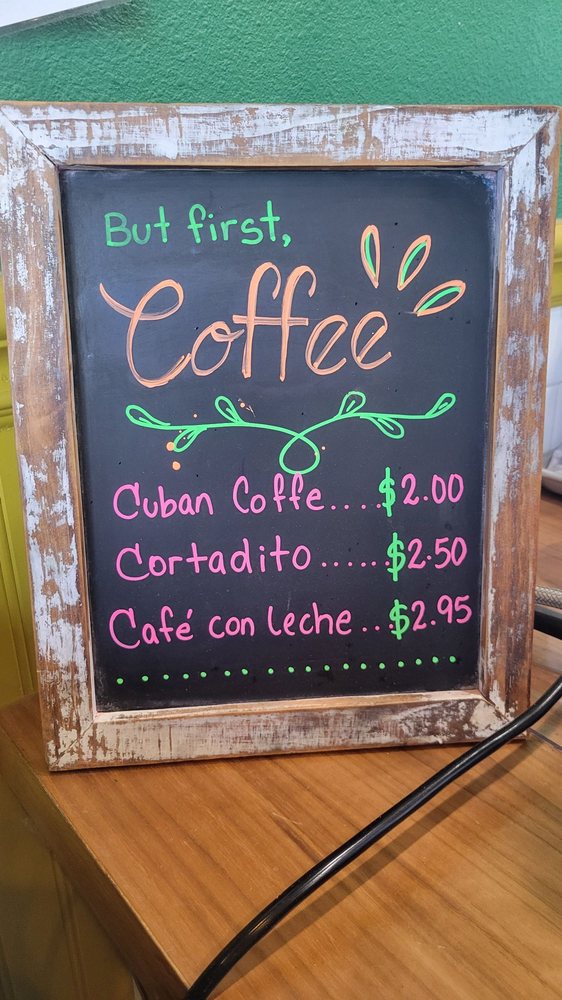 But first,
Coffee
Cuban Coffe....$2.00
Cortadito......$2.50
Café con leche...$2.95